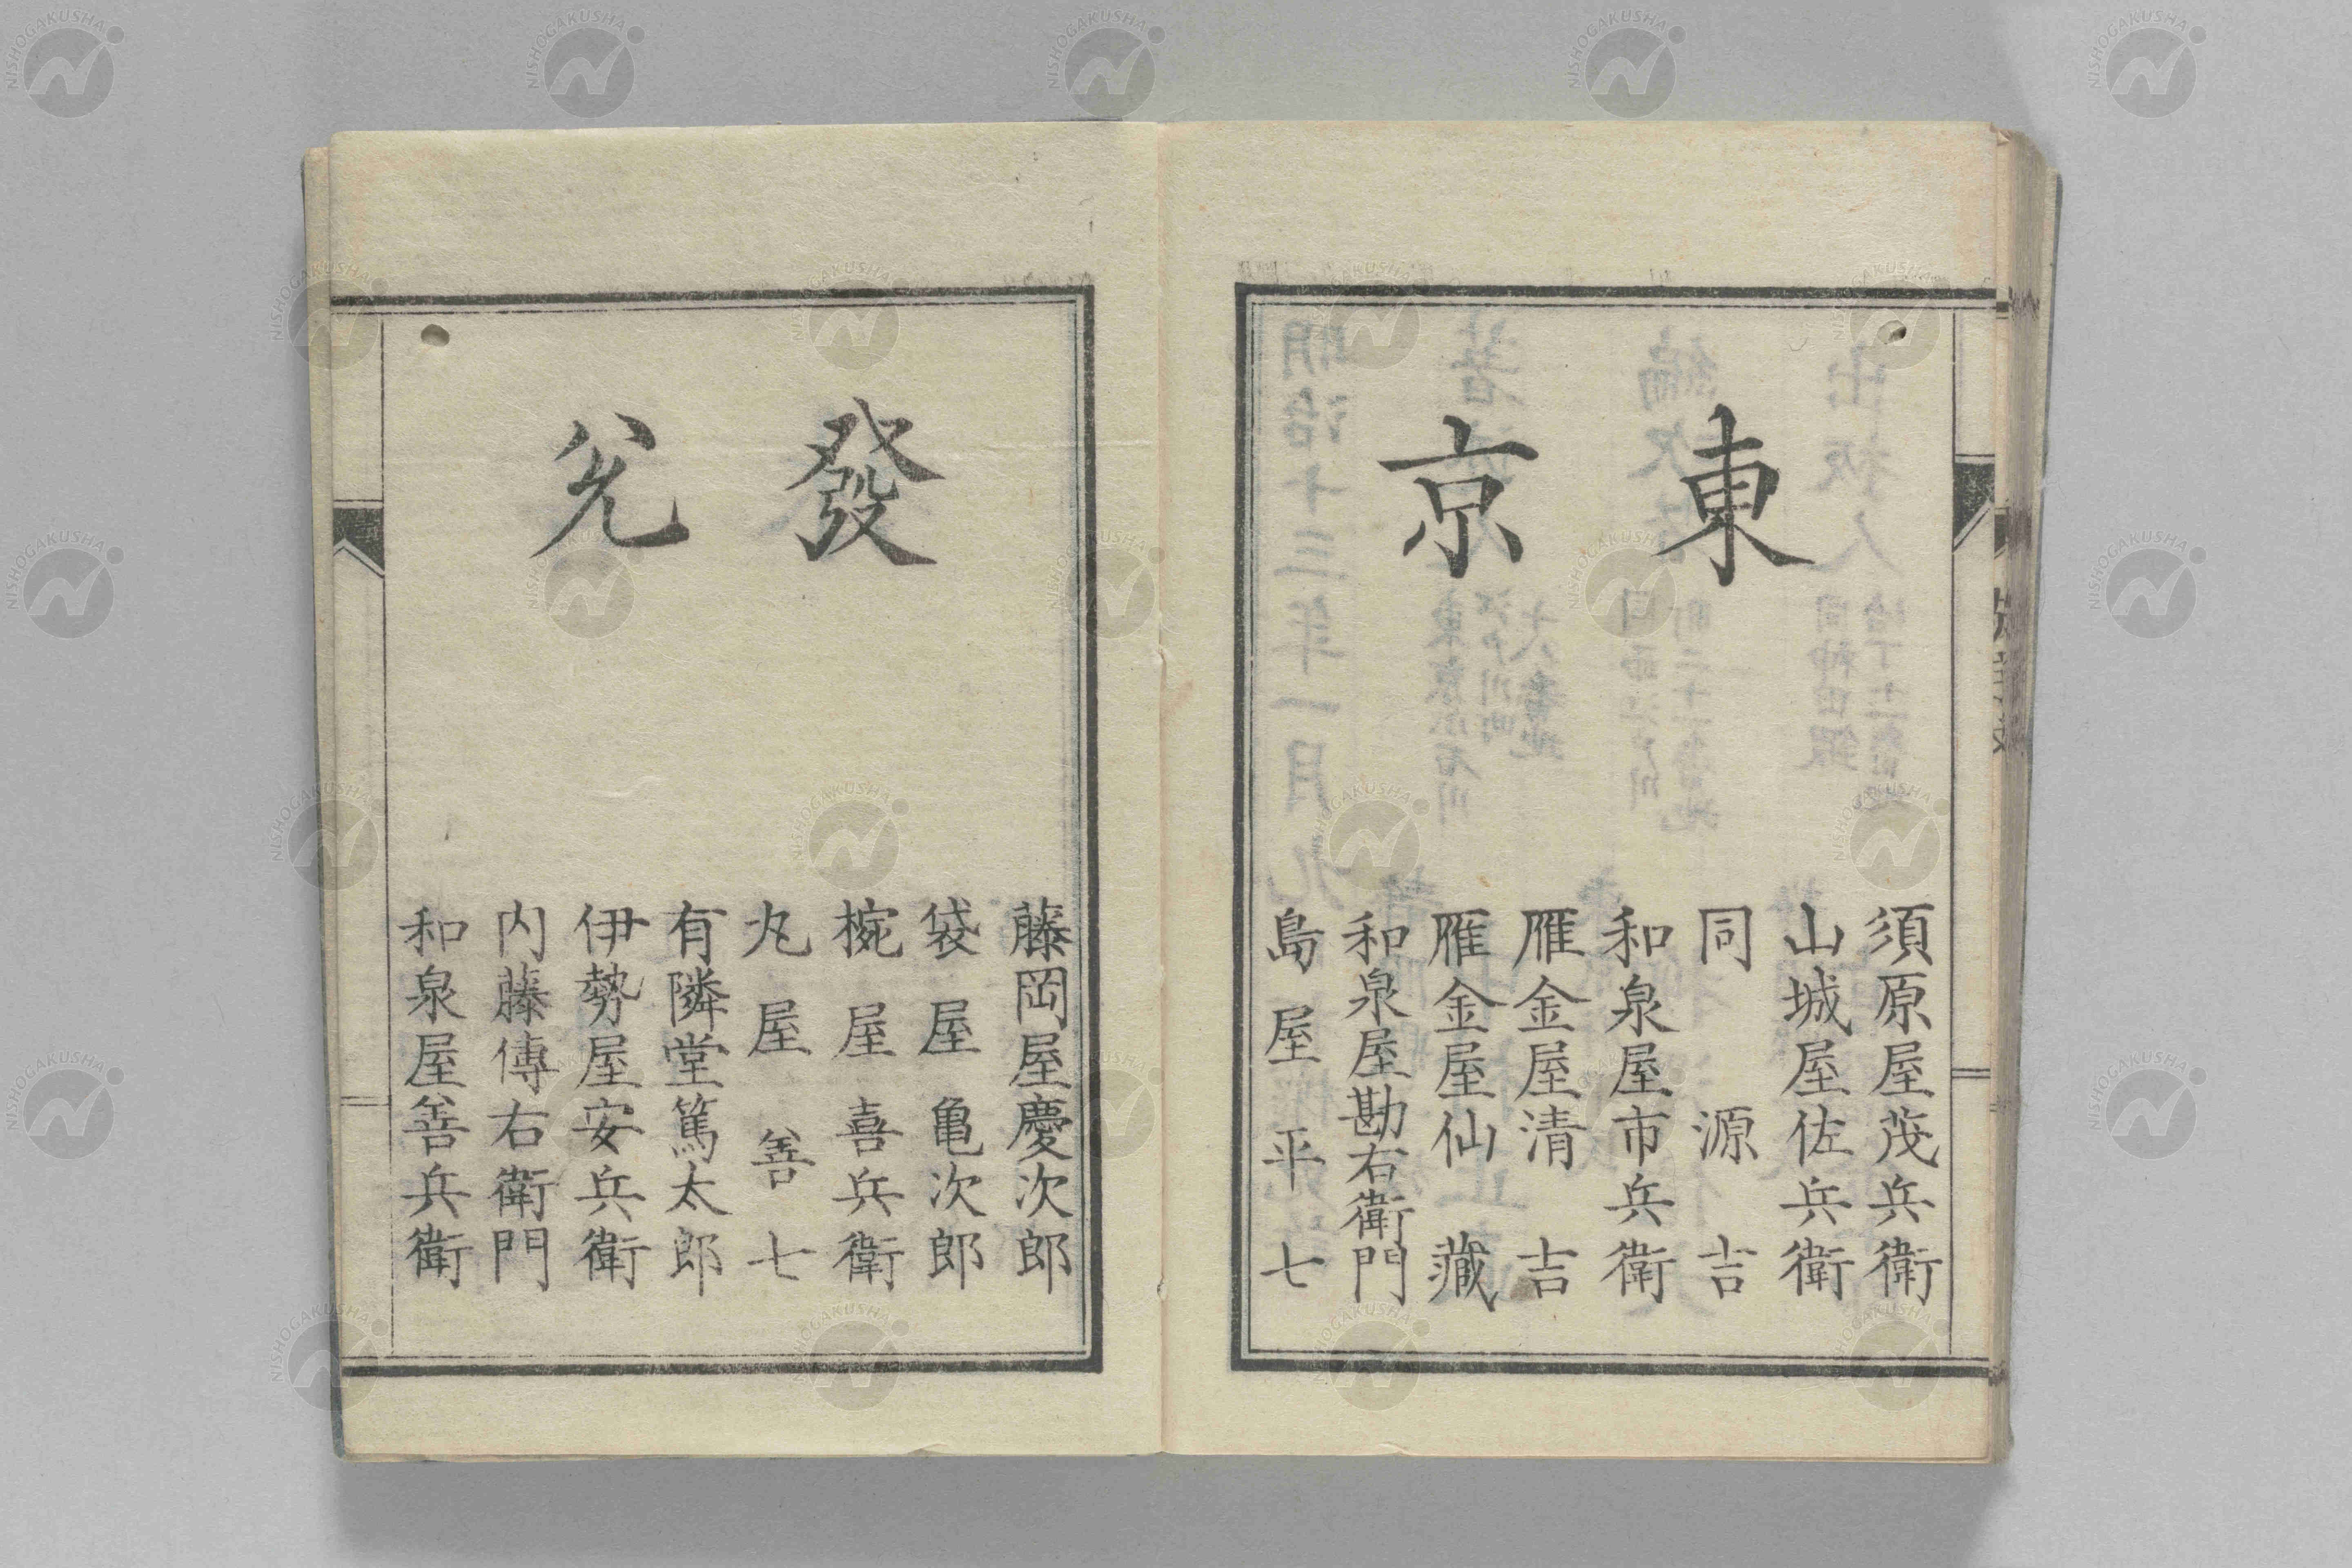 東京
須原屋茂兵衛
山城屋佐兵衛
同源吉
和泉屋市兵衛
雁金屋清吉
雁金屋仙藏
和泉屋勘右衛門
島屋平七
發兌
藤岡屋慶次郎
袋屋亀次郎
椀屋喜兵衛
丸屋善七
有隣堂篤太郎
伊勢屋安兵衛
内藤傳右衛門
和泉屋善兵衛
NISHOGAKUSHA